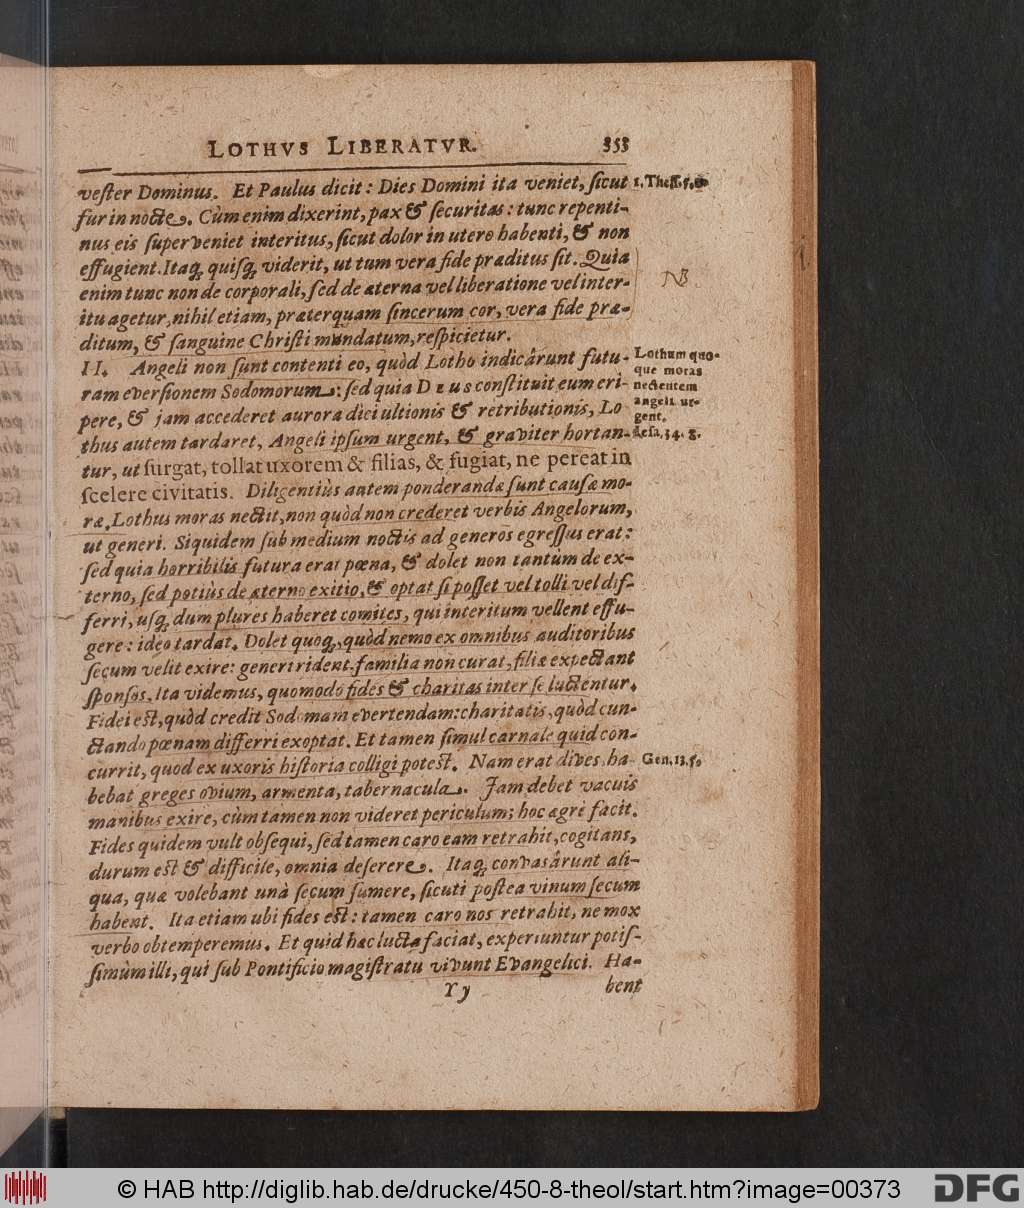 LOTHVS LIBERATVR. 353
veſter Dominus. Et Paulus dicit: Dies Domini ita veniet, ſicut
fur in nocte. Cùm enim dixerint, pax & ſecuritas: tunc repenti-
nus eis ſuperveniet interitus, ſicut dolor in utero habenti, & non
effugient. Itaq; quiſq; viderit, ut tum vera fide præditus ſit. Quia
enim tunc non de corporali, ſed de æterna vel liberatione vel inter-
itu agetur, nihil etiam, præterquam ſincerum cor, vera fide præ-
ditum, & ſanguine Chriſti mundatum, reſpicietur.
II. Angeli non ſunt contenti eo, quòd Lotho indicârunt futu-
ram everſionem Sodomorum: ſed quia DEUS conſtituit eum eri-
pere, & jam accederet aurora diei ultionis & retributionis, Lo
thus autem tardaret, Angeli ipſum urgent, & graviter hortan-
tur, ut ſurgat, tollat uxorem & filias, & fugiat, ne pereat in
ſcelere civitatis. Diligentiùs autem ponderandæ ſunt cauſæ mo-
ræ. Lothus moras nectit, non quòd non crederet verbis Angelorum,
ut generi. Siquidem ſub medium noctis ad generos egreſſus erat:
ſed quia horribilis futura erat pœna, & dolet non tantùm de ex-
terno, ſed potiùs de æterno exitio, & optat ſi poſſet vel tolli vel dif-
ferri, uſq; dum plures haberet comites, qui interitum vellent effu-
gere: ideo tardat. Dolet quoq;, quòd nemo ex omnibus auditoribus
ſecum velit exire: generi rident. familia non curat, filiæ expectant
ſponſos. Ita videmus, quomodo fides & charitas inter ſe luctentur.
Fidei eſt, quòd credit Sodomam evertendam: charitatis, quòd cun-
ctando pœnam differri exoptat. Et tamen ſimul carnale quid con-
currit, quod ex uxoris hiſtoria colligi poteſt. Nam erat dives, ha-
bebat greges ovium, armenta, tabernacula. Jam debet vacuis
manibus exire, cùm tamen non videret periculum; hoc ægrè facit.
Fides quidem vult obſequi, ſed tamen caro eam retrahit, cogitans,
durum eſt & difficile, omnia deſerere. Itaq; convasârunt ali-
qua, quæ volebant unà ſecum ſumere, ſicuti poſtea vinum ſecum
habent. Ita etiam ubi fides eſt: tamen caro nos retrahit, ne mox
verbo obtemperemus. Et quid hæc lucta faciat, experiuntur potiſ-
ſimùm illi, qui ſub Pontificio magiſtratu vivunt Evangelici. Ha-
Yy bent
1. Theſſ. 5,
NB.
Lothum quo-
que moras
nectentem
angeli ur-
gent.
Eſa. 34. 8.
Gen. 13. 5.
© HAB http://diglib.hab.de/drucke/450-8-theol/start.htm?image=00373
DFG